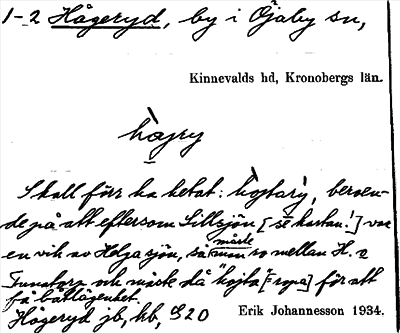 1-2 Hågeryd, by i Öjaby sn,
Kinnevalds hd, Kronobergs län.
hàgry
Skall förr ha hetat: hojtarỳ, beroen-
de på att eftersom Lillsjön [se kartan!] var
en vik av Helgasjön, så måste man ro mellan H. o
och måste då "hojta" [= ropa] för att
få båtlägenhet.
Hågeryd jb, kb, G20
Erik Johannesson 1934.